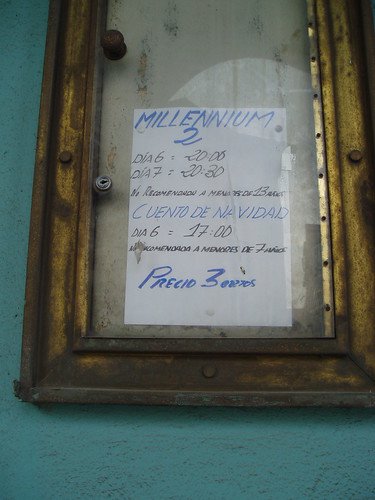 MILLENNIUM
2
DIA 6 = 20:00
DIA 7 = 20:30
No RECOMENDADA A MENORES DE 13 AÑOS
CUENTO DE NAVIDAD
DIA 6 = 17:00
RECOMENDADA A MENORES DE 7 AÑOS
PRECIO 3 euros